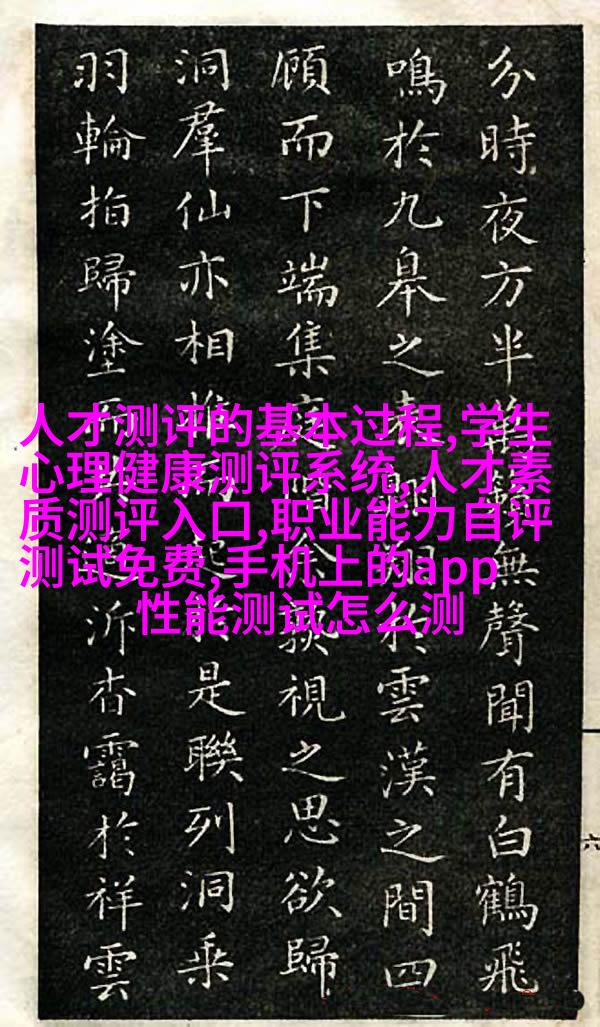 分時夜方半無聲聞有白鶴飛
鳴於九皋之雲漢之間四
顧而下端集視之思欲歸
洞羣仙亦相是聯列洞乗
羽輪指歸塗泝杳靄於祥雲
人才测评的基本过程,学生
心理健康测评系统,人才素
质测评入口,职业能力自评
测试免费,手机上的app
性能测试怎么测
六